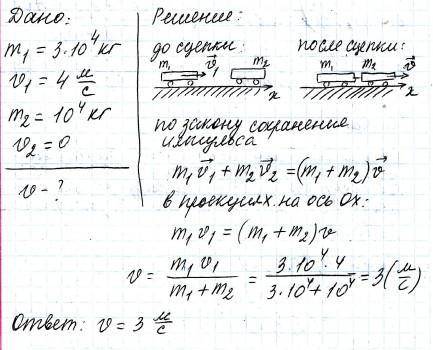 Дано:
m₁ = 3·10⁴ кг
v₁ = 4 м/с
m₂ = 10⁴ кг
v₂ = 0
v – ?
Решение:
до сцепки:
m₁ v⃗₁ m₂
x
после сцепки:
m₁ m₂ v⃗
x
по закону сохранения
импульса
m₁v⃗₁ + m₂v⃗₂ = (m₁ + m₂)v⃗
в проекциях на ось Ox:
m₁v₁ = (m₁ + m₂)v
v = m₁v₁ / (m₁ + m₂) = 3·10⁴·4 / (3·10⁴ + 10⁴) = 3 (м/с)
Ответ: v = 3 м/с